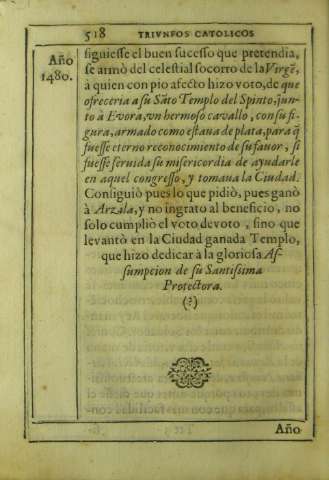 518 TRIVNFOS CATOLICOS
Año
1480.
ſiguieſſe el buen ſuceſſo que pretendia,
ſe armò del celeſtial ſocorro de la Virgẽ,
à quien con pio afecto hizo voto, de que
ofreceria a ſu Sãto Templo del Spinto, jun-
to à Evora, vn hermoſo cavallo, con ſu fi-
gura, armado como eſtaua de plata, para q̃
fueſſe eterno reconocimiento de ſu fauor, ſi
fueſſe ſeruida ſu miſericordia de ayudarle
en aquel congreſſo, y tomaua la Ciudad.
Conſiguiò pues lo que pidiò, pues ganò
à Arzila, y no ingrato al beneficio, no
ſolo cumpliò el voto devoto, ſino que
levantò en la Ciudad ganada Templo,
que hizo dedicàr à la glorioſa Aſ-
ſumpcion de ſu Santiſsima
Protectora.
(?)
Año